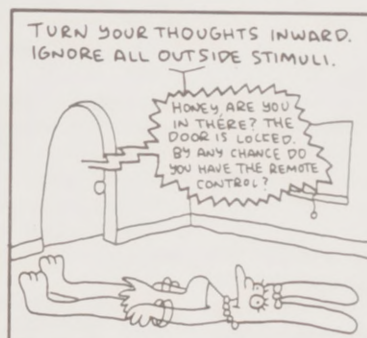 TURN YOUR THOUGHTS INWARD.
IGNORE ALL OUTSIDE STIMULI.
HONEY, ARE YOU
IN THERE? THE
DOOR IS LOCKED.
BY ANY CHANCE DO
YOU HAVE THE REMOTE
CONTROL?